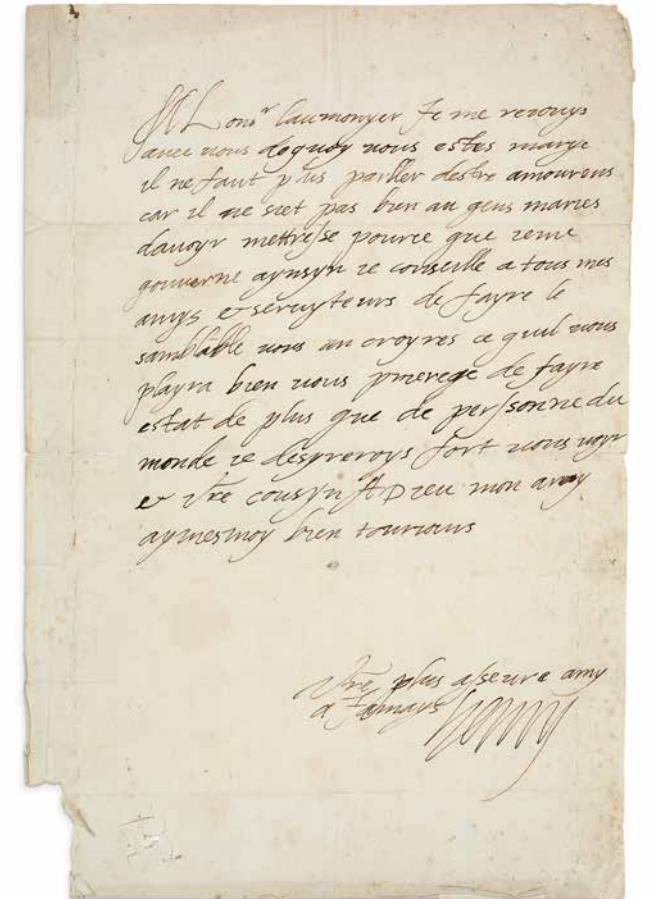 Monsr laumonyer Je me reiouys
avec vous dequoy vous estes marye
il ne faut plus parller destre amoureus
car il ne siet pas bien au gens maries
davoyr mettresse pource que ieme
gouverne aynsyn ie conseille a tous mes
amys et servyteurs de fayre le
samblable vous an croyres ce quil vous
playra bien vous de fayre
estat de plus que de personne du
monde ie desyreroys fort vous voyr
et vre cousyn ADieu mon amy
aymesmoy bien tousiours
Vre plus asseure amy
a Jamays Henry